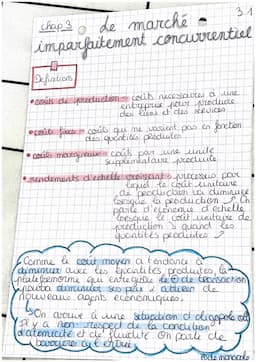 3.1
chap 3 • Le marché •
imparfaitement concurrentiel
Définitions
• coûts de production = coûts nécessaires à une
entreprise pour produire
des biens et des services
• coûts fixes = coûts qui ne varient pas en fonction
des quantités produites
• coût marginaux = coûts par une unité
supplémentaire produite
• rendements d'échelle croissant = processus par
lequel le coût unitaire
de production va diminuer
lorsque la production ↗. On
parle d'économie d'échelle
lorsque le coût unitaire de
production ↘ quand les
quantités produites ↗
Comme le coût moyen a tendance à
diminuer avec les quantités produites, la
plateforme qui enregistre le de transaction
voudra diminuer ses prix attirer de
nouveaux agents économiques.
↳ On arrive à une situation d'oligopole où
il y a non-respect de la condition
d'atomicité et de fluidité. On parle de
barrière à l'entrée
de monopole